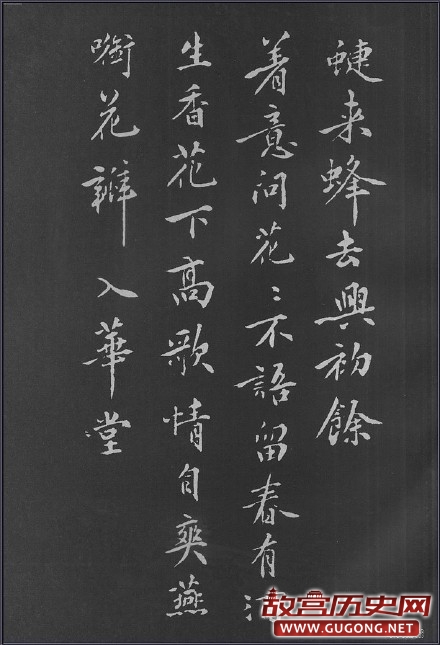 蜨来蜂去興初餘
着意问花〻不語留春有
生香花下高歌情自爽燕
啣花瓣入華堂
故宫历史网
www.GUGONG.net